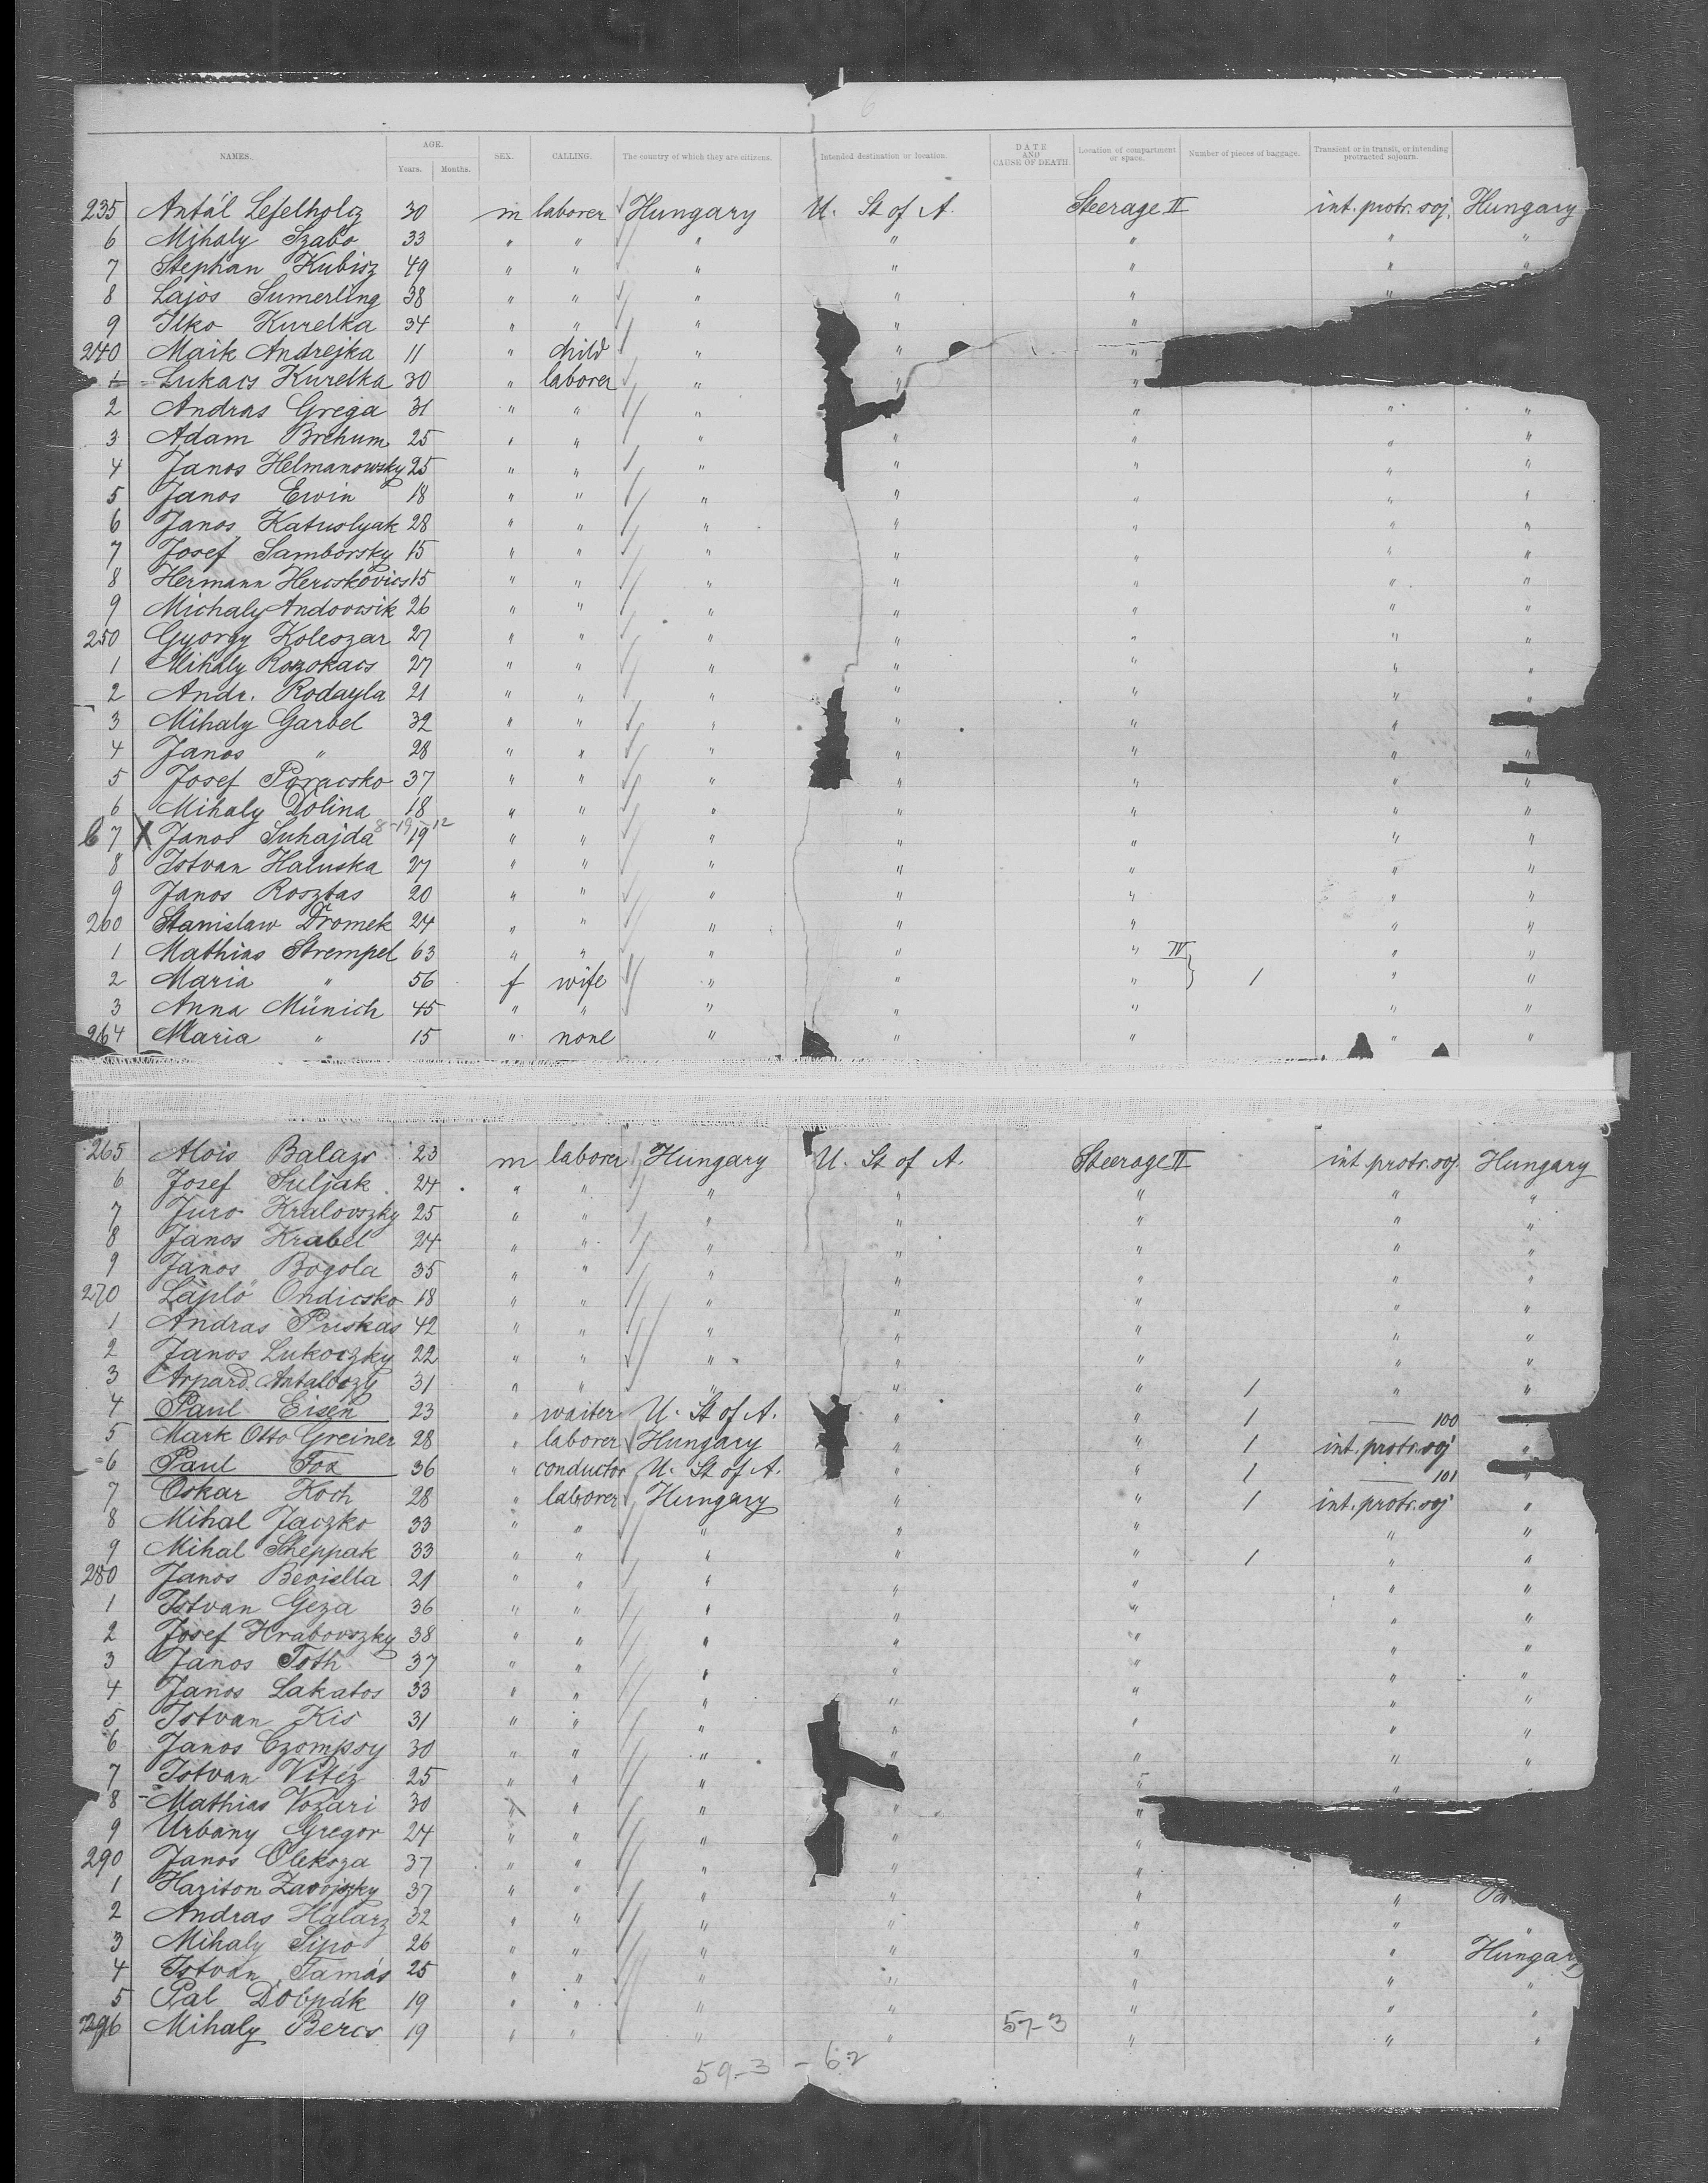 6
NAMES. AGE. Years. Months. SEX. CALLING. The country of which they are citizens. Intended destination or location. DATE AND CAUSE OF DEATH Location of compartment or space. Number of pieces of baggage. Transient or in transit, or intending protracted sojourn.
235 Antál Lefelholcz 30 m laborer Hungary U. St of A. Steerage II int. protr. soj. Hungary
6 Mihaly Szabo 33 " " " " " " "
7 Stephan Kubisz 49 " " " " " " "
8 Lajos Sumerling 38 " " " " " "
9 Ilko Kurelka 34 " " " " "
240 Maik Andrejka 11 " child " " "
1 Lukacs Kurelka 30 " laborer " " "
2 Andras Grega 31 " " " " " "
3 Adam Brehum 25 " " " " " " "
4 Janos Helmanowsky 25 " " " " " " "
5 Janos Ewin 18 " " " " " " "
6 Janos Katuslyak 28 " " " " " " "
7 Josef Samborsky 15 " " " " " " "
8 Hermann Hercskovics 15 " " " " " " "
9 Michaly Andovcsik 26 " " " " " " "
250 Gyorgy Koleszar 27 " " " " " " "
1 Mihaly Rozokacs 27 " " " " " " "
2 Andr. Rodayla 21 " " " " " " "
3 Mihaly Garbel 32 " " " " " "
4 Janos " 28 " " " " " " "
5 Josef Poracsko 37 " " " " " " "
6 Mihaly Dolina 18 " " " " " " "
7 X Janos Suhajda 19 " " " " " " "
8 Istvan Haluska 27 " " " " " " "
9 Janos Rosztas 20 " " " " " " "
260 Stanislaw Dromek 24 " " " " " " "
1 Mathias Strempel 63 " " " " " IV " "
2 Maria " 56 f wife " " " 1 " "
3 Anna Münich 45 " " " " " " "
264 Maria " 15 " none " " " " "
265 Alois Balazs 23 m laborer Hungary U. St of A. Steerage II int. protr. soj. Hungary
6 Josef Suljak 24 " " " " " " "
7 Juro Kralovszky 25 " " " " " " "
8 Janos Krabel 24 " " " " " " "
9 Janos Bogola 35 " " " " " " "
270 Lajlo Ondicsko 18 " " " " " " "
1 Andras Puskas 42 " " " " " " "
2 Janos Lukoczky 22 " " " " " " "
3 Arpard Antaloczy 31 " " " " " 1 " "
4 Paul Eisen 23 " waiter U. St of A. " " 1 — 100
5 Mark Otto Greiner 28 " laborer Hungary " " 1 int. protr. soj "
6 Paul Fox 36 " conductor U. St of A. " " 1 — 101
7 Oskar Koch 28 " laborer Hungary " " 1 int. protr. soj "
8 Mihal Jaczko 33 " " " " " " "
9 Mihal Scheppak 33 " " " " " 1 " "
280 Janos Beviella 21 " " " " " " "
1 Istvan Geza 36 " " " " " " "
2 Josef Hrabovszky 38 " " " " " " "
3 Janos Toth 37 " " " " " " "
4 Janos Lakatos 33 " " " " " " "
5 Istvan Kis 31 " " " " " " "
6 Janos Czompsy 30 " " " " " " "
7 Istvan Vitéz 25 " " " " " " "
8 Mathias Vozari 30 " " " " "
9 Urbany Gregor 24 " " " " "
290 Janos Oleksza 37 " " " " "
1 Hariton Zavojszky 37 " " " " " "
2 Andras Halarz 32 " " " " " " "
3 Mihaly Sipo 26 " " " " " " Hungary
4 Istvan Tamás 25 " " " " " " "
5 Pal Dobpák 19 " " " " " " "
296 Mihaly Bercs 19 " " " " " " "
57-3
59-3 - 62